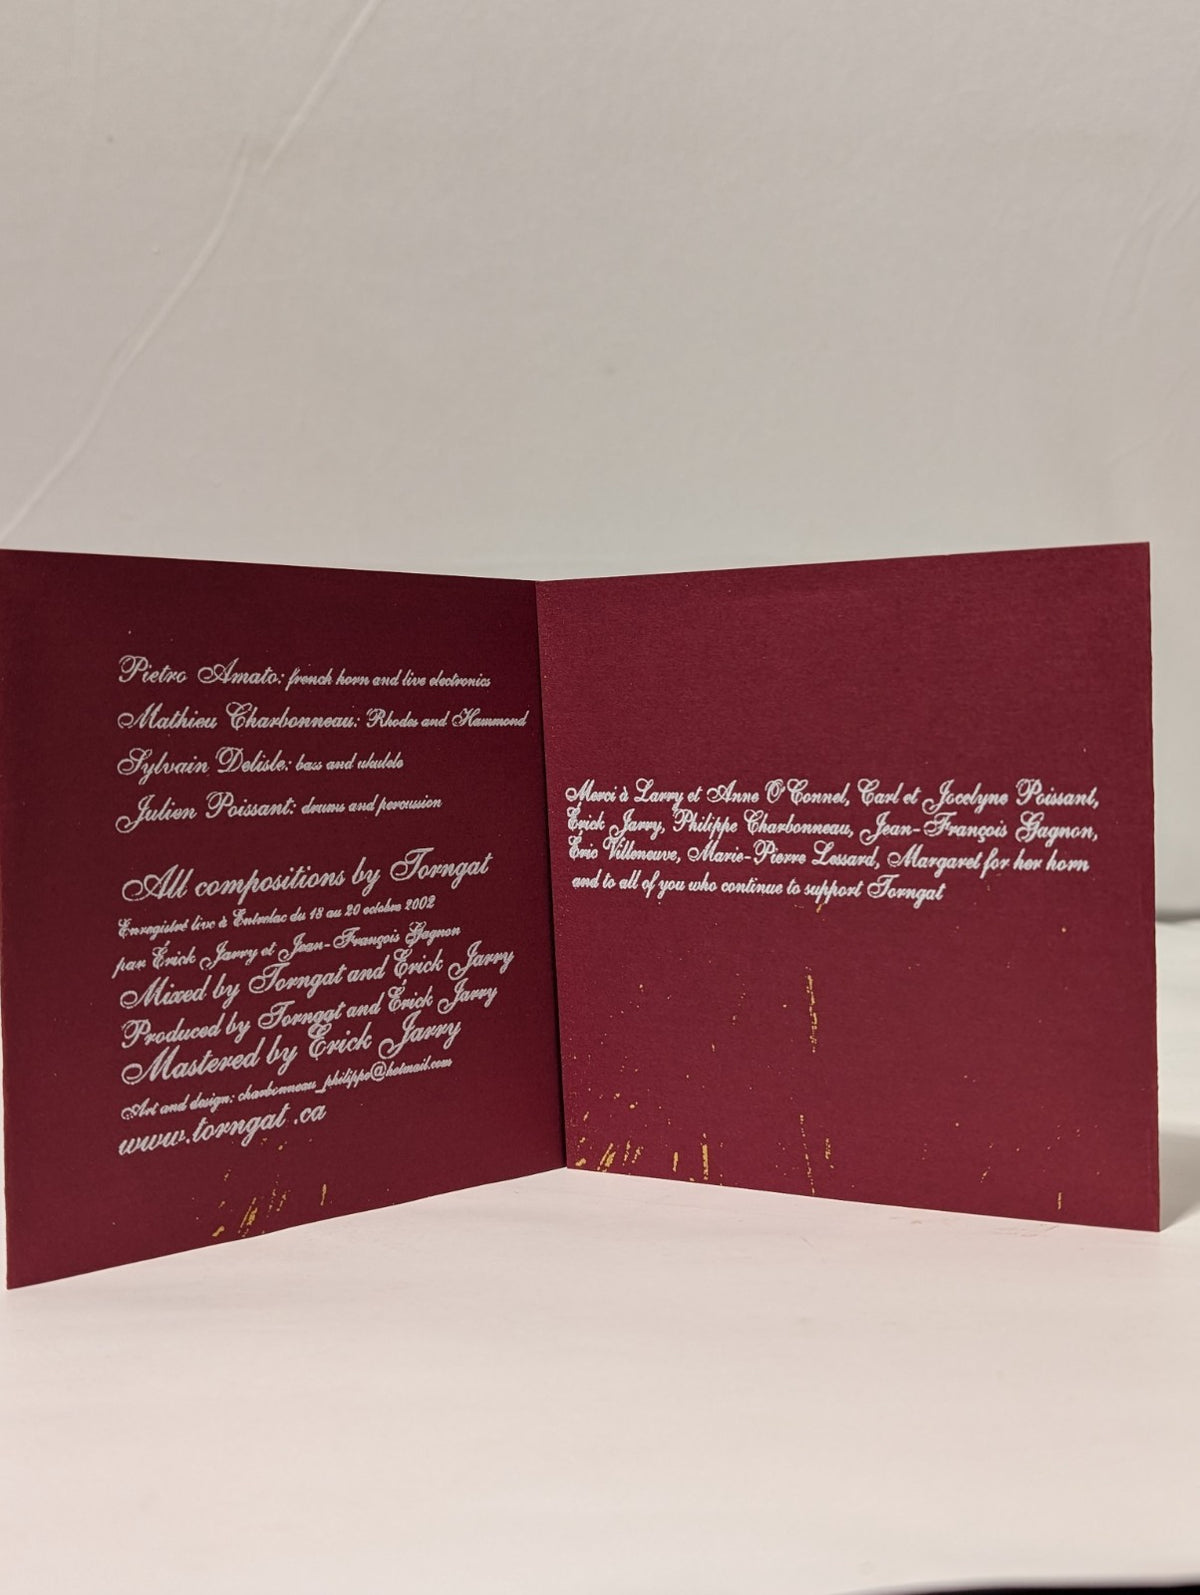 Pietro Amato: french horn and live electronics
Mathieu Charbonneau: Rhodes and Hammond
Sylvain Delisle: bass and ukulele
Julien Poissant: drums and percussion
All compositions by Torngat
Enregistré live à Entrelac du 18 au 20 octobre 2002
par Érick Jarry et Jean-François Gagnon
Mixed by Torngat and Érick Jarry
Produced by Torngat and Érick Jarry
Mastered by Érick Jarry
Art and design: charbonneau_philippe@hotmail.com
www.torngat .ca
Merci à Larry et Anne O'Connel, Carl et Jocelyne Poissant,
Érick Jarry, Philippe Charbonneau, Jean-François Gagnon,
Éric Villeneuve, Marie-Pierre Lessard, Margaret for her horn
and to all of you who continue to support Torngat